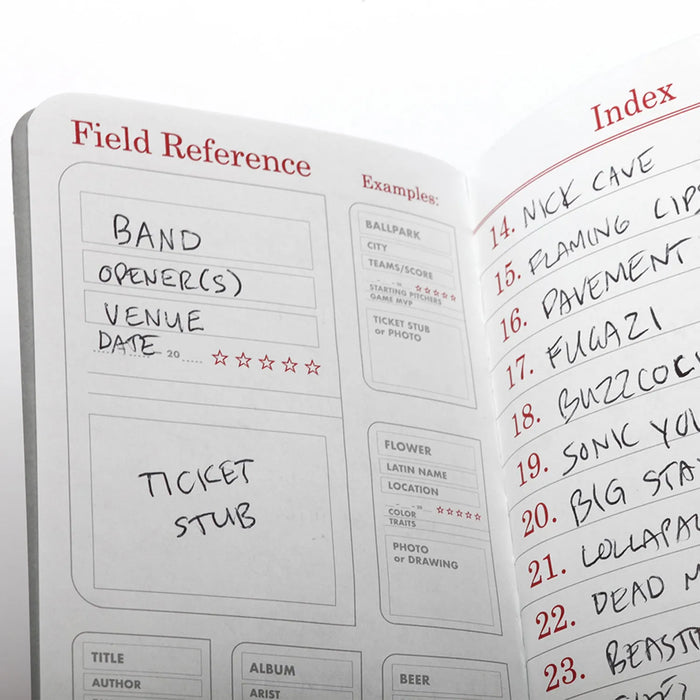 Field Reference
BAND
OPENER(S)
VENUE
DATE 20
TICKET
STUB
Examples:
BALLPARK
CITY
TEAMS/SCORE
STARTING PITCHERS
GAME MVP
TICKET STUB
or PHOTO
FLOWER
LATIN NAME
LOCATION
COLOR
TRAITS
PHOTO
or DRAWING
TITLE
AUTHOR
ALBUM
ARIST
BEER
Index
14. NICK CAVE
15. FLAMING LIPS
16. PAVEMENT
17. FUGAZI
18. BUZZCOC
19. SONIC YOU
20. BIG STA
21. LOLLAPAL
22. DEAD M
23. BEASTI